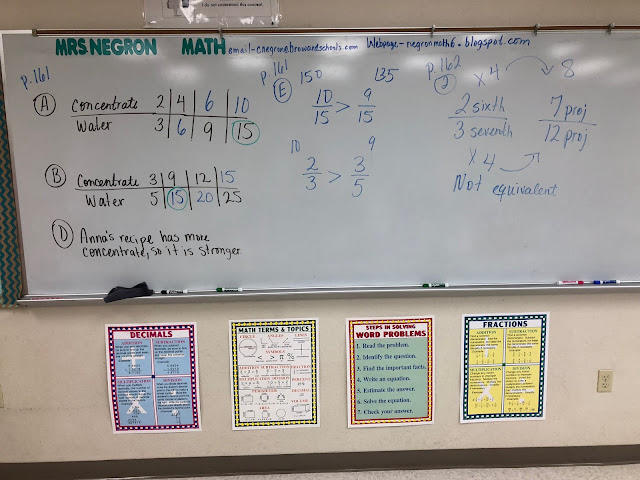 I do not understand this concept.
MRS NEGRON MATH email-cnegron@browardschools.com Webpage-negronmath6.blogspot.com
p.161
A
Concentrate 2 4 6 10
Water 3 6 9 15
B
Concentrate 3 9 12 15
Water 5 15 20 25
D Anna's recipe has more
concentrate, so it is stronger.
p.161
E
150 135
10/15 > 9/15
10 9
2/3 > 3/5
p.162
2
x4 8
2 sixth 7 proj
3 seventh 12 proj
x4
Not equivalent
DECIMALS
ADDITION SUBTRACTION
MULTIPLICATION DIVISION
MATH TERMS & TOPICS
CIRCLE ANGLES LINES
SYMBOLS
ADDITION SUBTRACTION
AREA VOLUME
STEPS IN SOLVING
WORD PROBLEMS
1. Read the problem.
2. Identify the question.
3. Find the important facts.
4. Write an equation.
5. Estimate the answer.
6. Solve the equation.
7. Check your answer.
FRACTIONS
ADDITION SUBTRACTION
MULTIPLICATION DIVISION